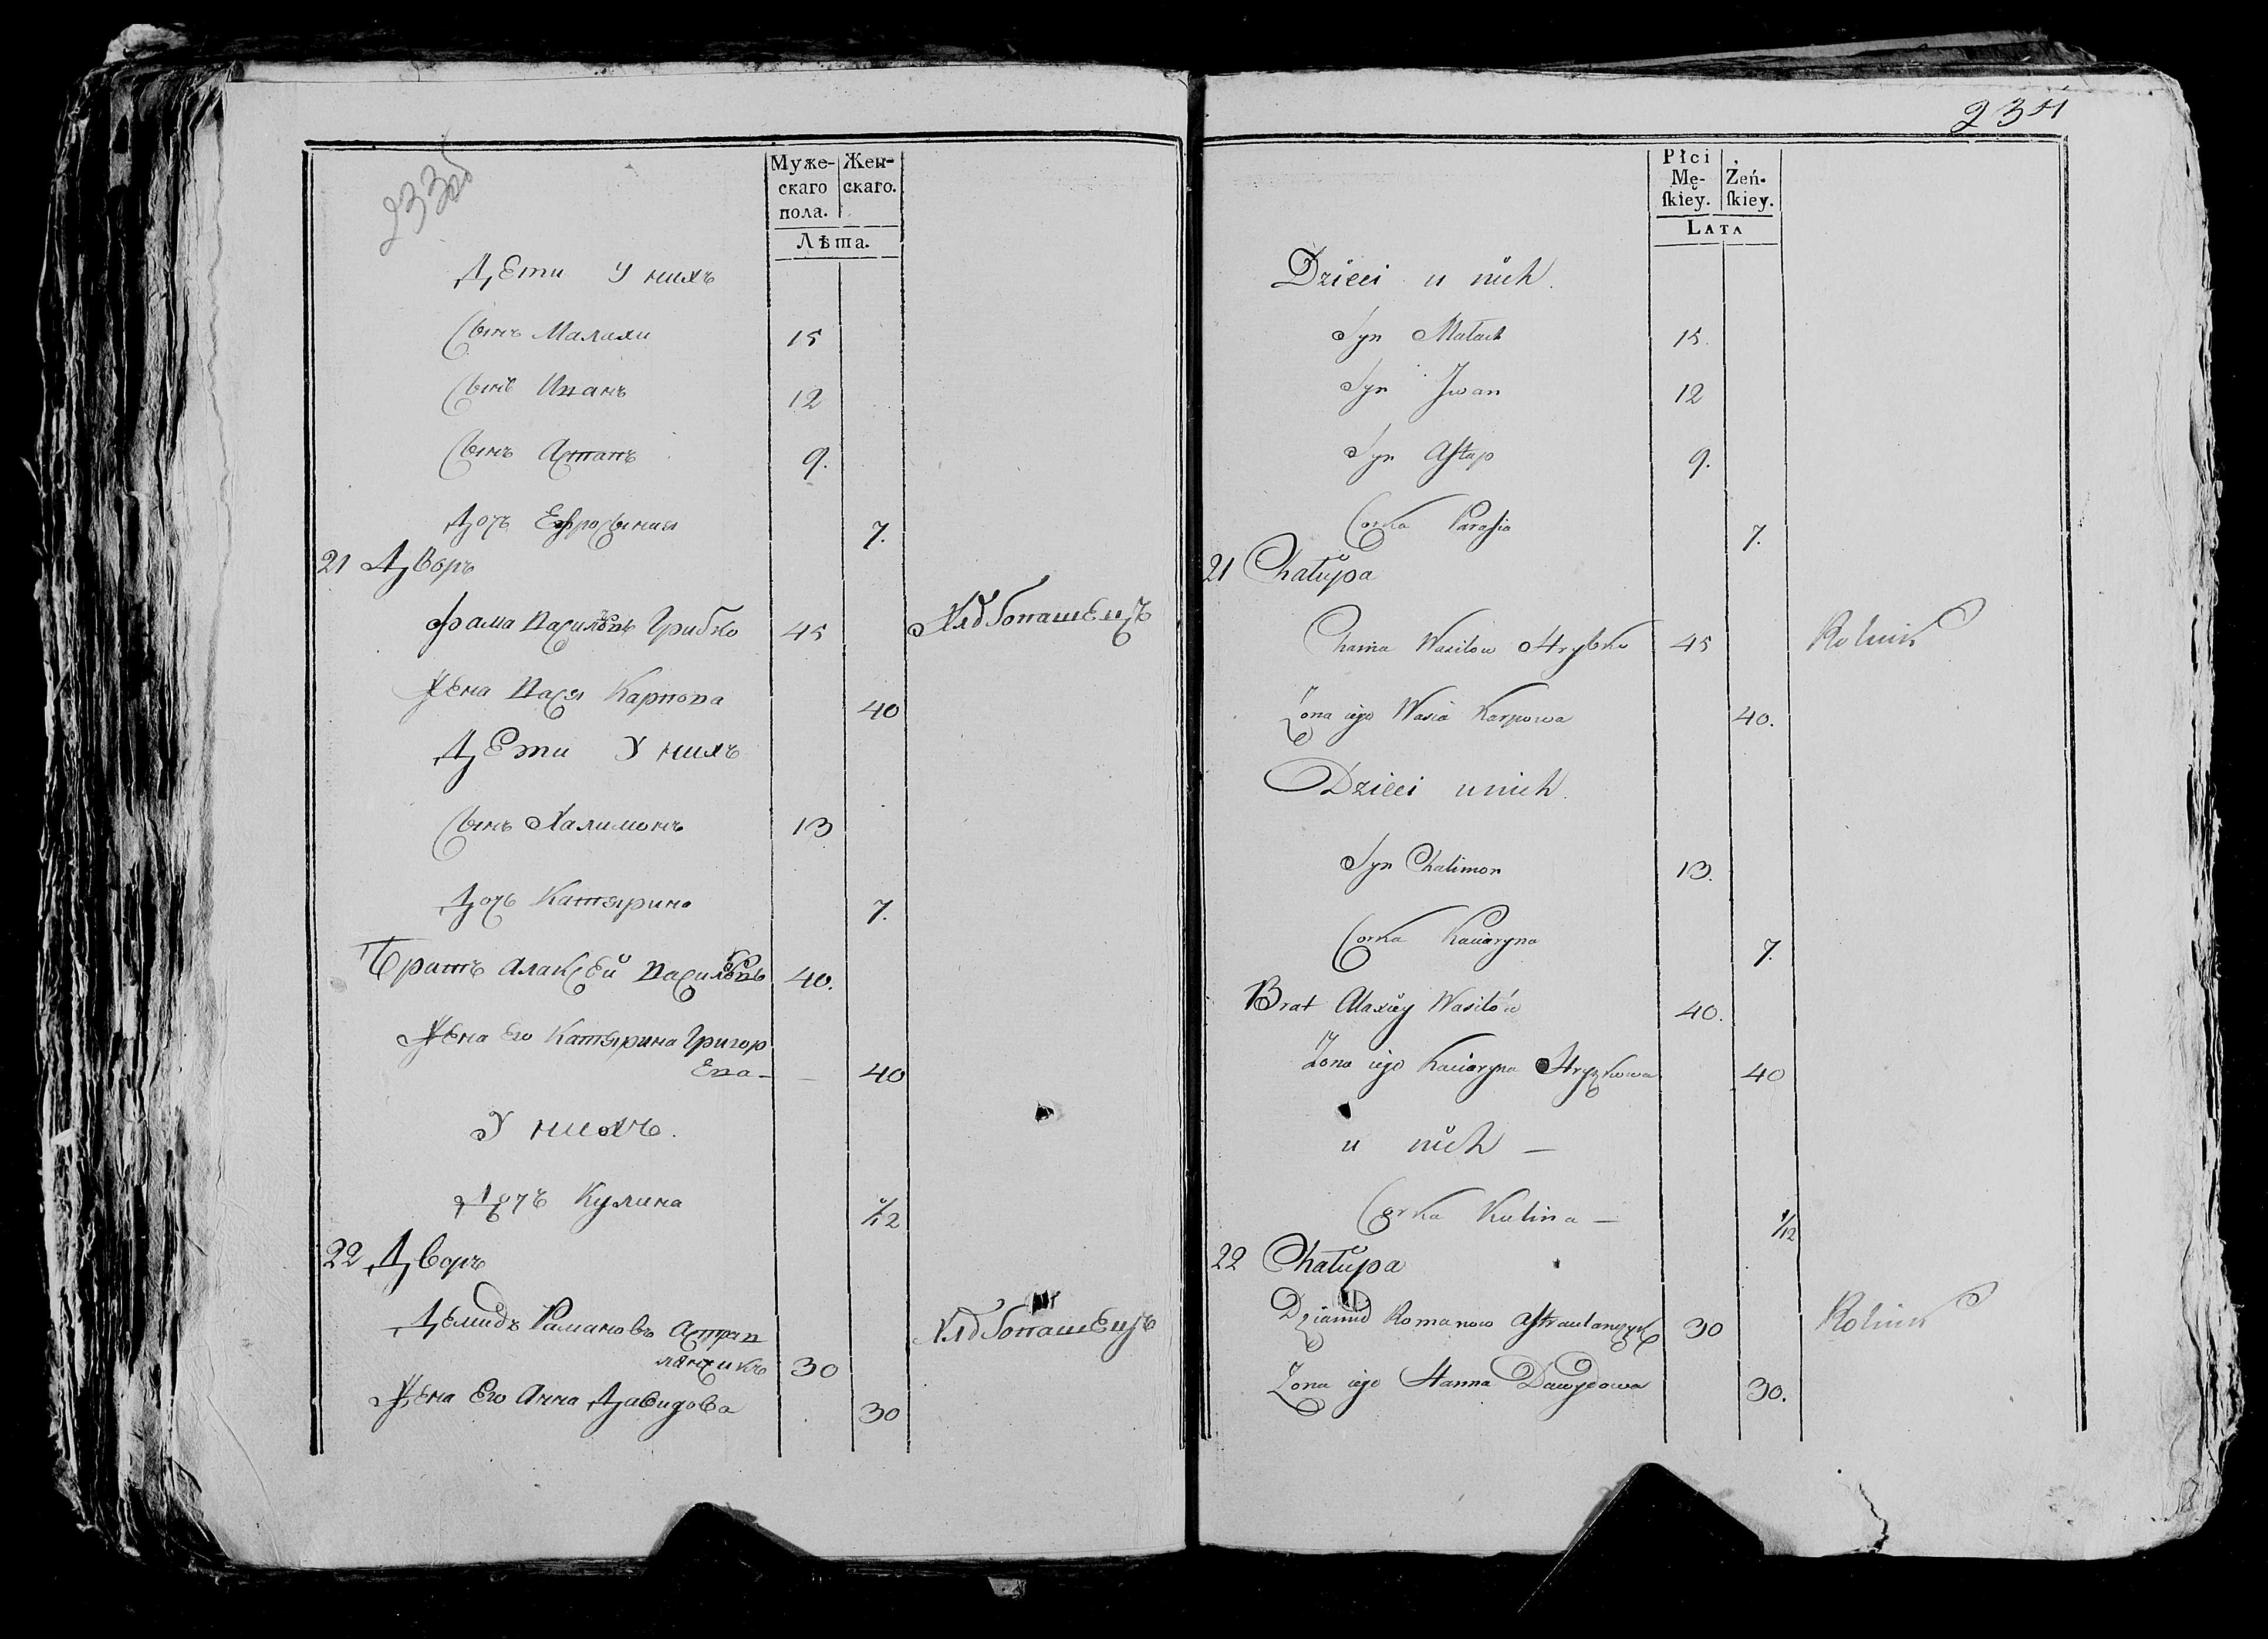 233об
Муже-
скаго
пола.
Жен-
скаго.
Лѣта.
Дети у нихъ
Сынъ Малахи 15
Сынъ Иванъ 12
Сынъ Астапъ 9.
Дочъ Ефросиния 7.
21 Дворъ
Фама Васильовъ Грибко 45 Хлѣбопашецъ
Жена Вася Карпова 40
Дети У нихъ
Сынъ Халимонъ 13
Дочъ Катярина 7.
Братъ Алаксей Васильовъ 40.
Жена Его Катярина Григор
Ева - 40
У нихъ.
Дочъ Кулина 1/12
22 Дворъ
Демидъ Рамановъ Астрав
лянчикъ 30 Хлѣбопашецъ
Жена Его Анна Давидова 30
234
Płci
Mę-
ſkiey.
Żeń-
ſkiey.
Lata
Dzieci u nich.
Syn Małach 15.
Syn Jwan 12
Syn Aſtap 9.
Corka Paraſia 7.
21 Chałupa
Chama Wasilow Hrybko 45 Rolnik
Zona iego Wasia Karpowa 40.
Dzieci u nich.
Syn Chalimon 13.
Corka Kaciaryna 7.
Brat Alaxiey Wasilów 40.
Zona iego Kaciaryna Hryzkowa 40
u nich —
Corka Kulina — 1/12
22 Chałupa
Dziamid Romanow Aſtraulanczyk 30 Rolnik
Zona iego Hanna Dawydowa 30.